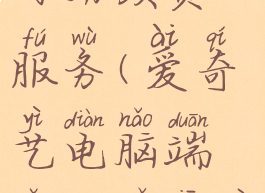 fú wù ài qí
服务(爱奇
yì diàn nǎo duān
艺电脑端